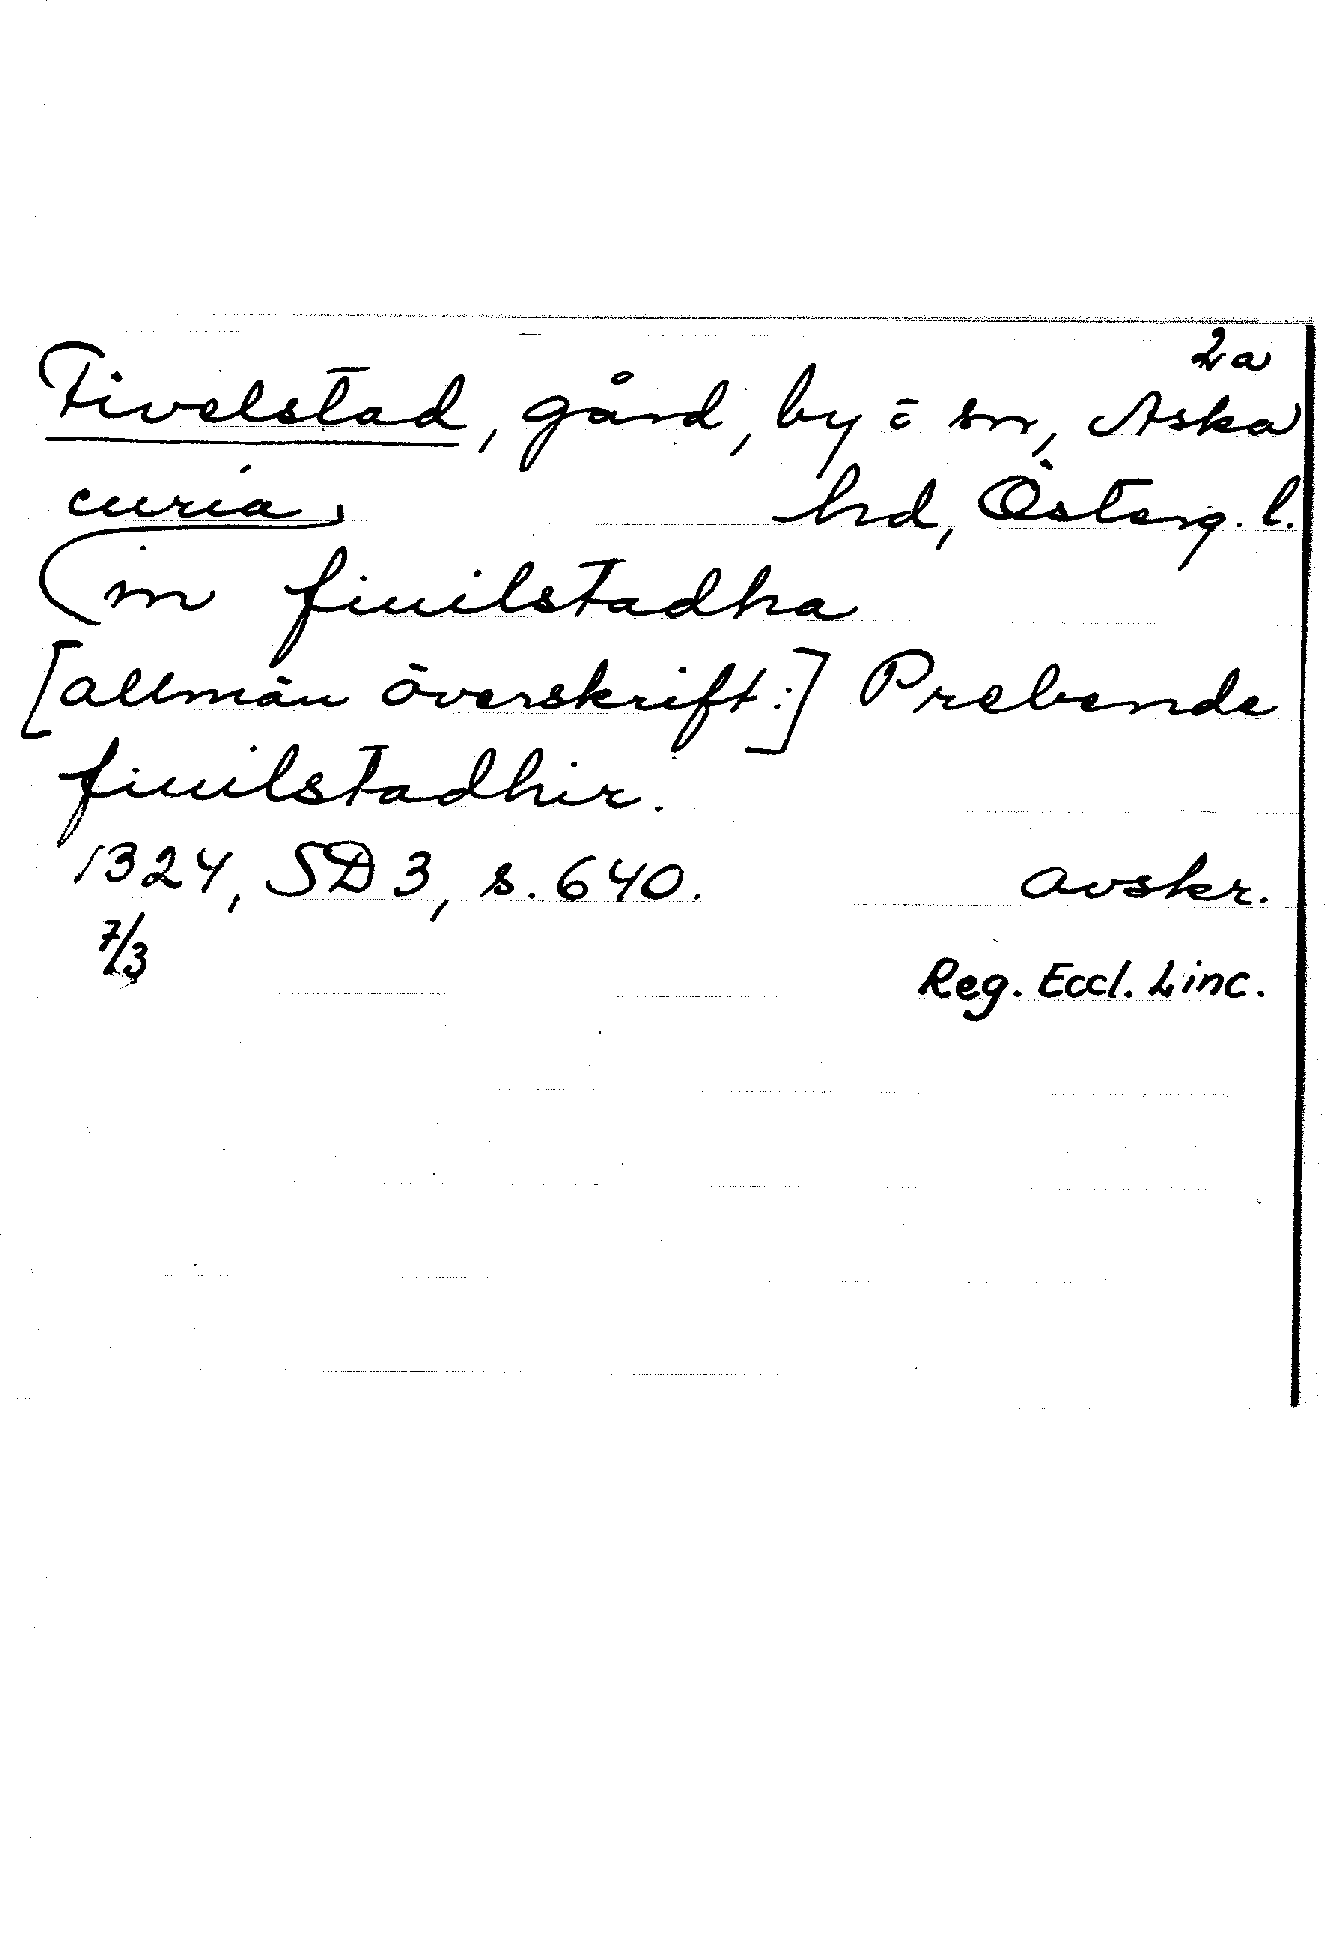 2a
Fivelstad, gård, by o sn, Aska
curia hd, Österg. l.
in fiuilstadha
[allmän överskrift:] Prebende
fiuilstadhir.
1324, SD 3, s. 640. avskr.
7/3
Reg. Eccl. Linc.